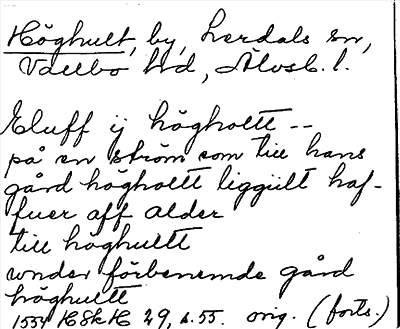 Höghult, by, Lerdals sn,
Valbo hd, Älvsb. l.
Eluff ij högholtt --
på en ström som till hans
gård högholtt liggiilt haf-
fuer aff alder
till höghultt
wnder förbenemde gård
höghultt
1554 HSkH 29, s. 55. orig. (forts.)